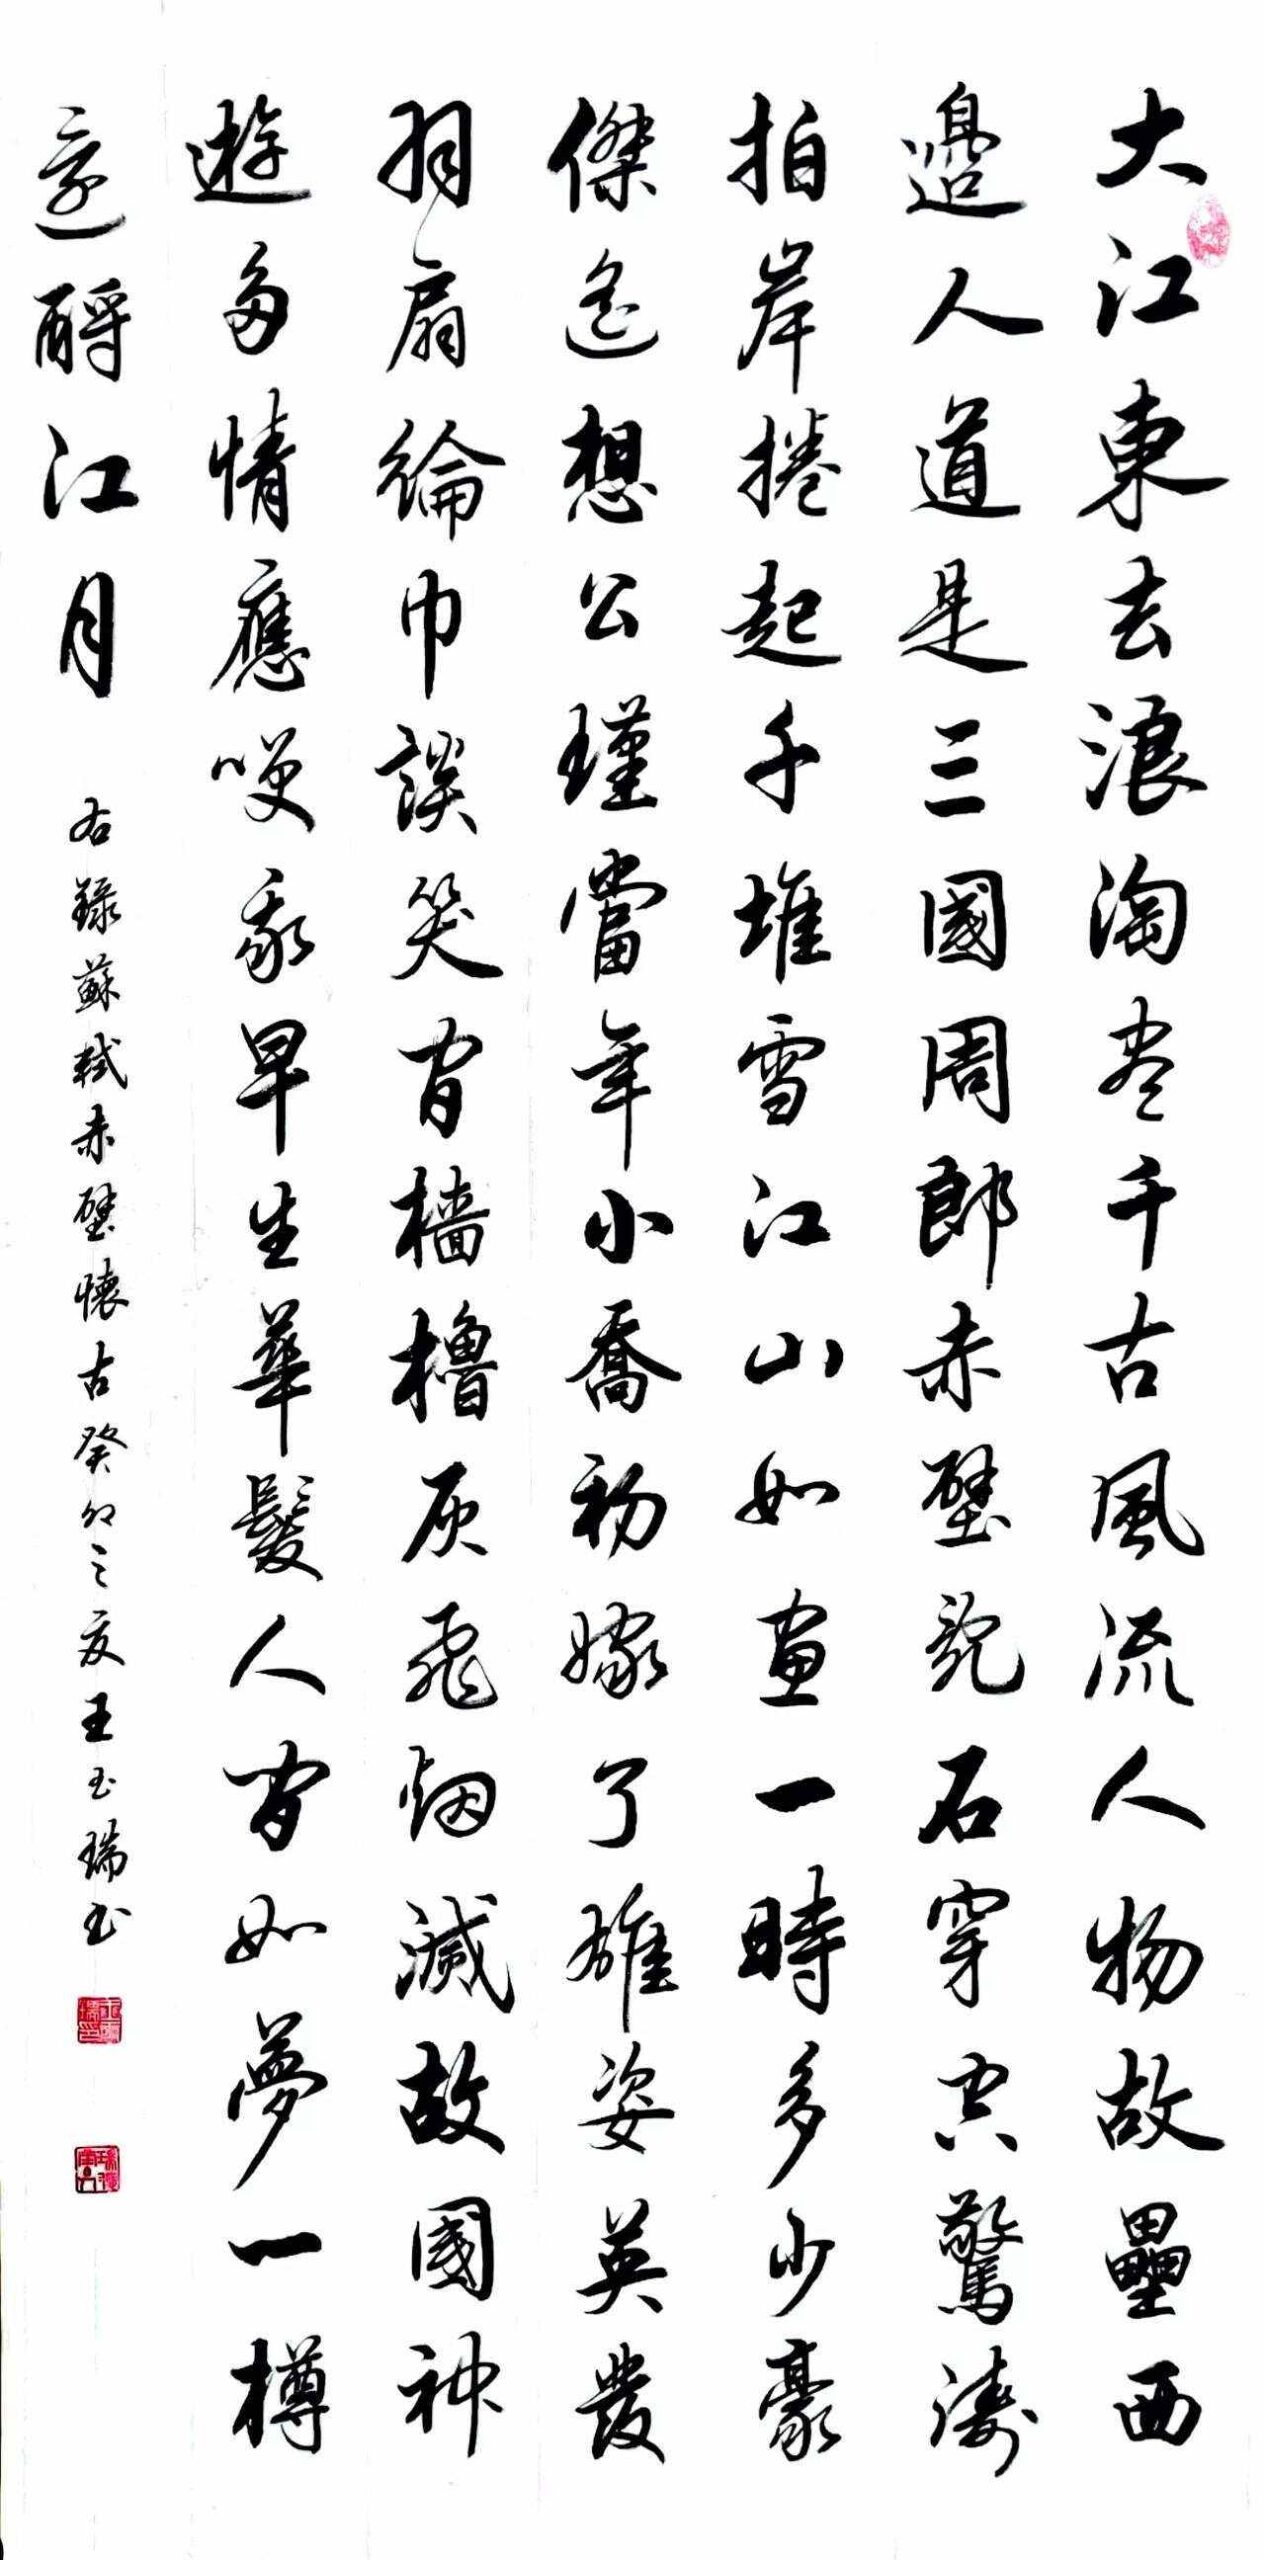 大江東去浪淘盡千古風流人物故壘西
邊人道是三國周郎赤壁亂石穿空驚濤
拍岸捲起千堆雪江山如畫一時多少豪
傑遙想公瑾當年小喬初嫁了雄姿英發
羽扇綸巾談笑間檣櫓灰飛烟滅故國神
遊多情應咲我早生華髮人間如夢一樽
還酹江月
右錄蘇軾赤壁懷古癸卯之夏王玉瑞書